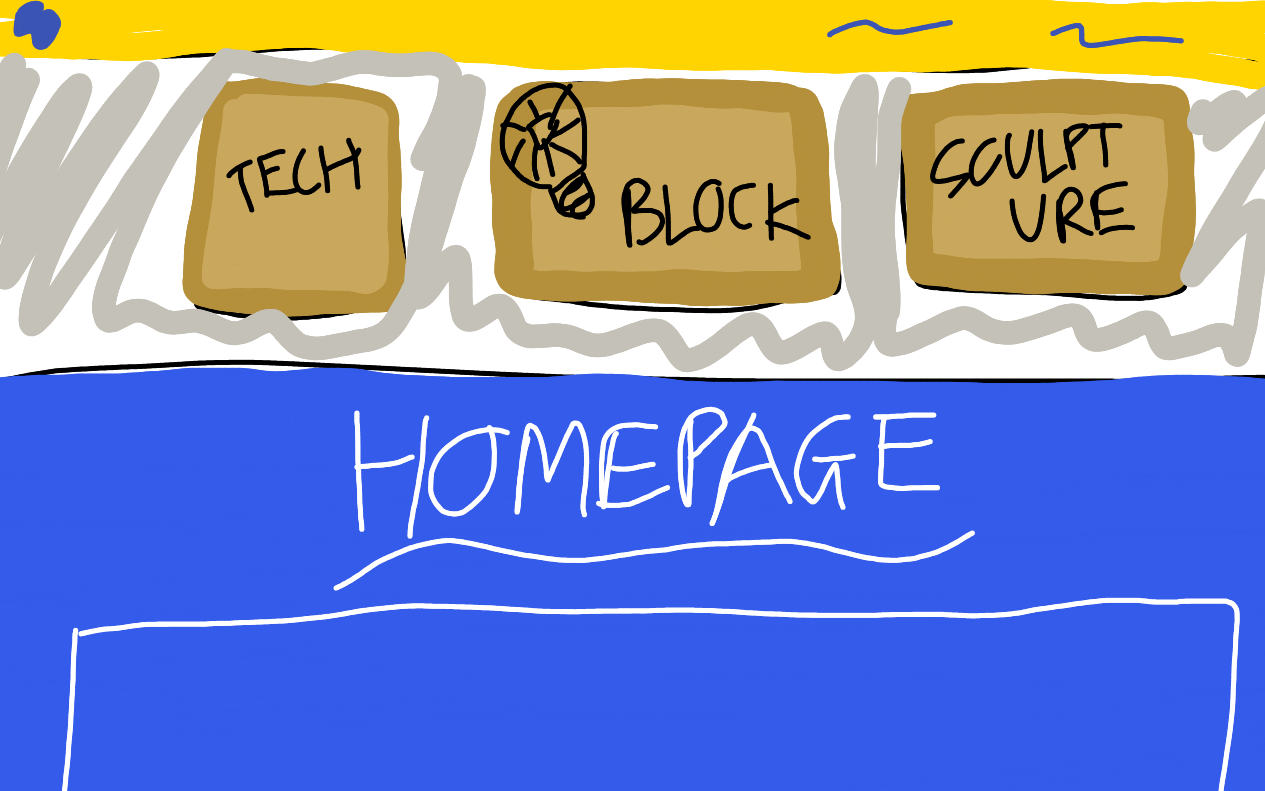 TECH
BLOCK
SCULPT
URE
HOMEPAGE